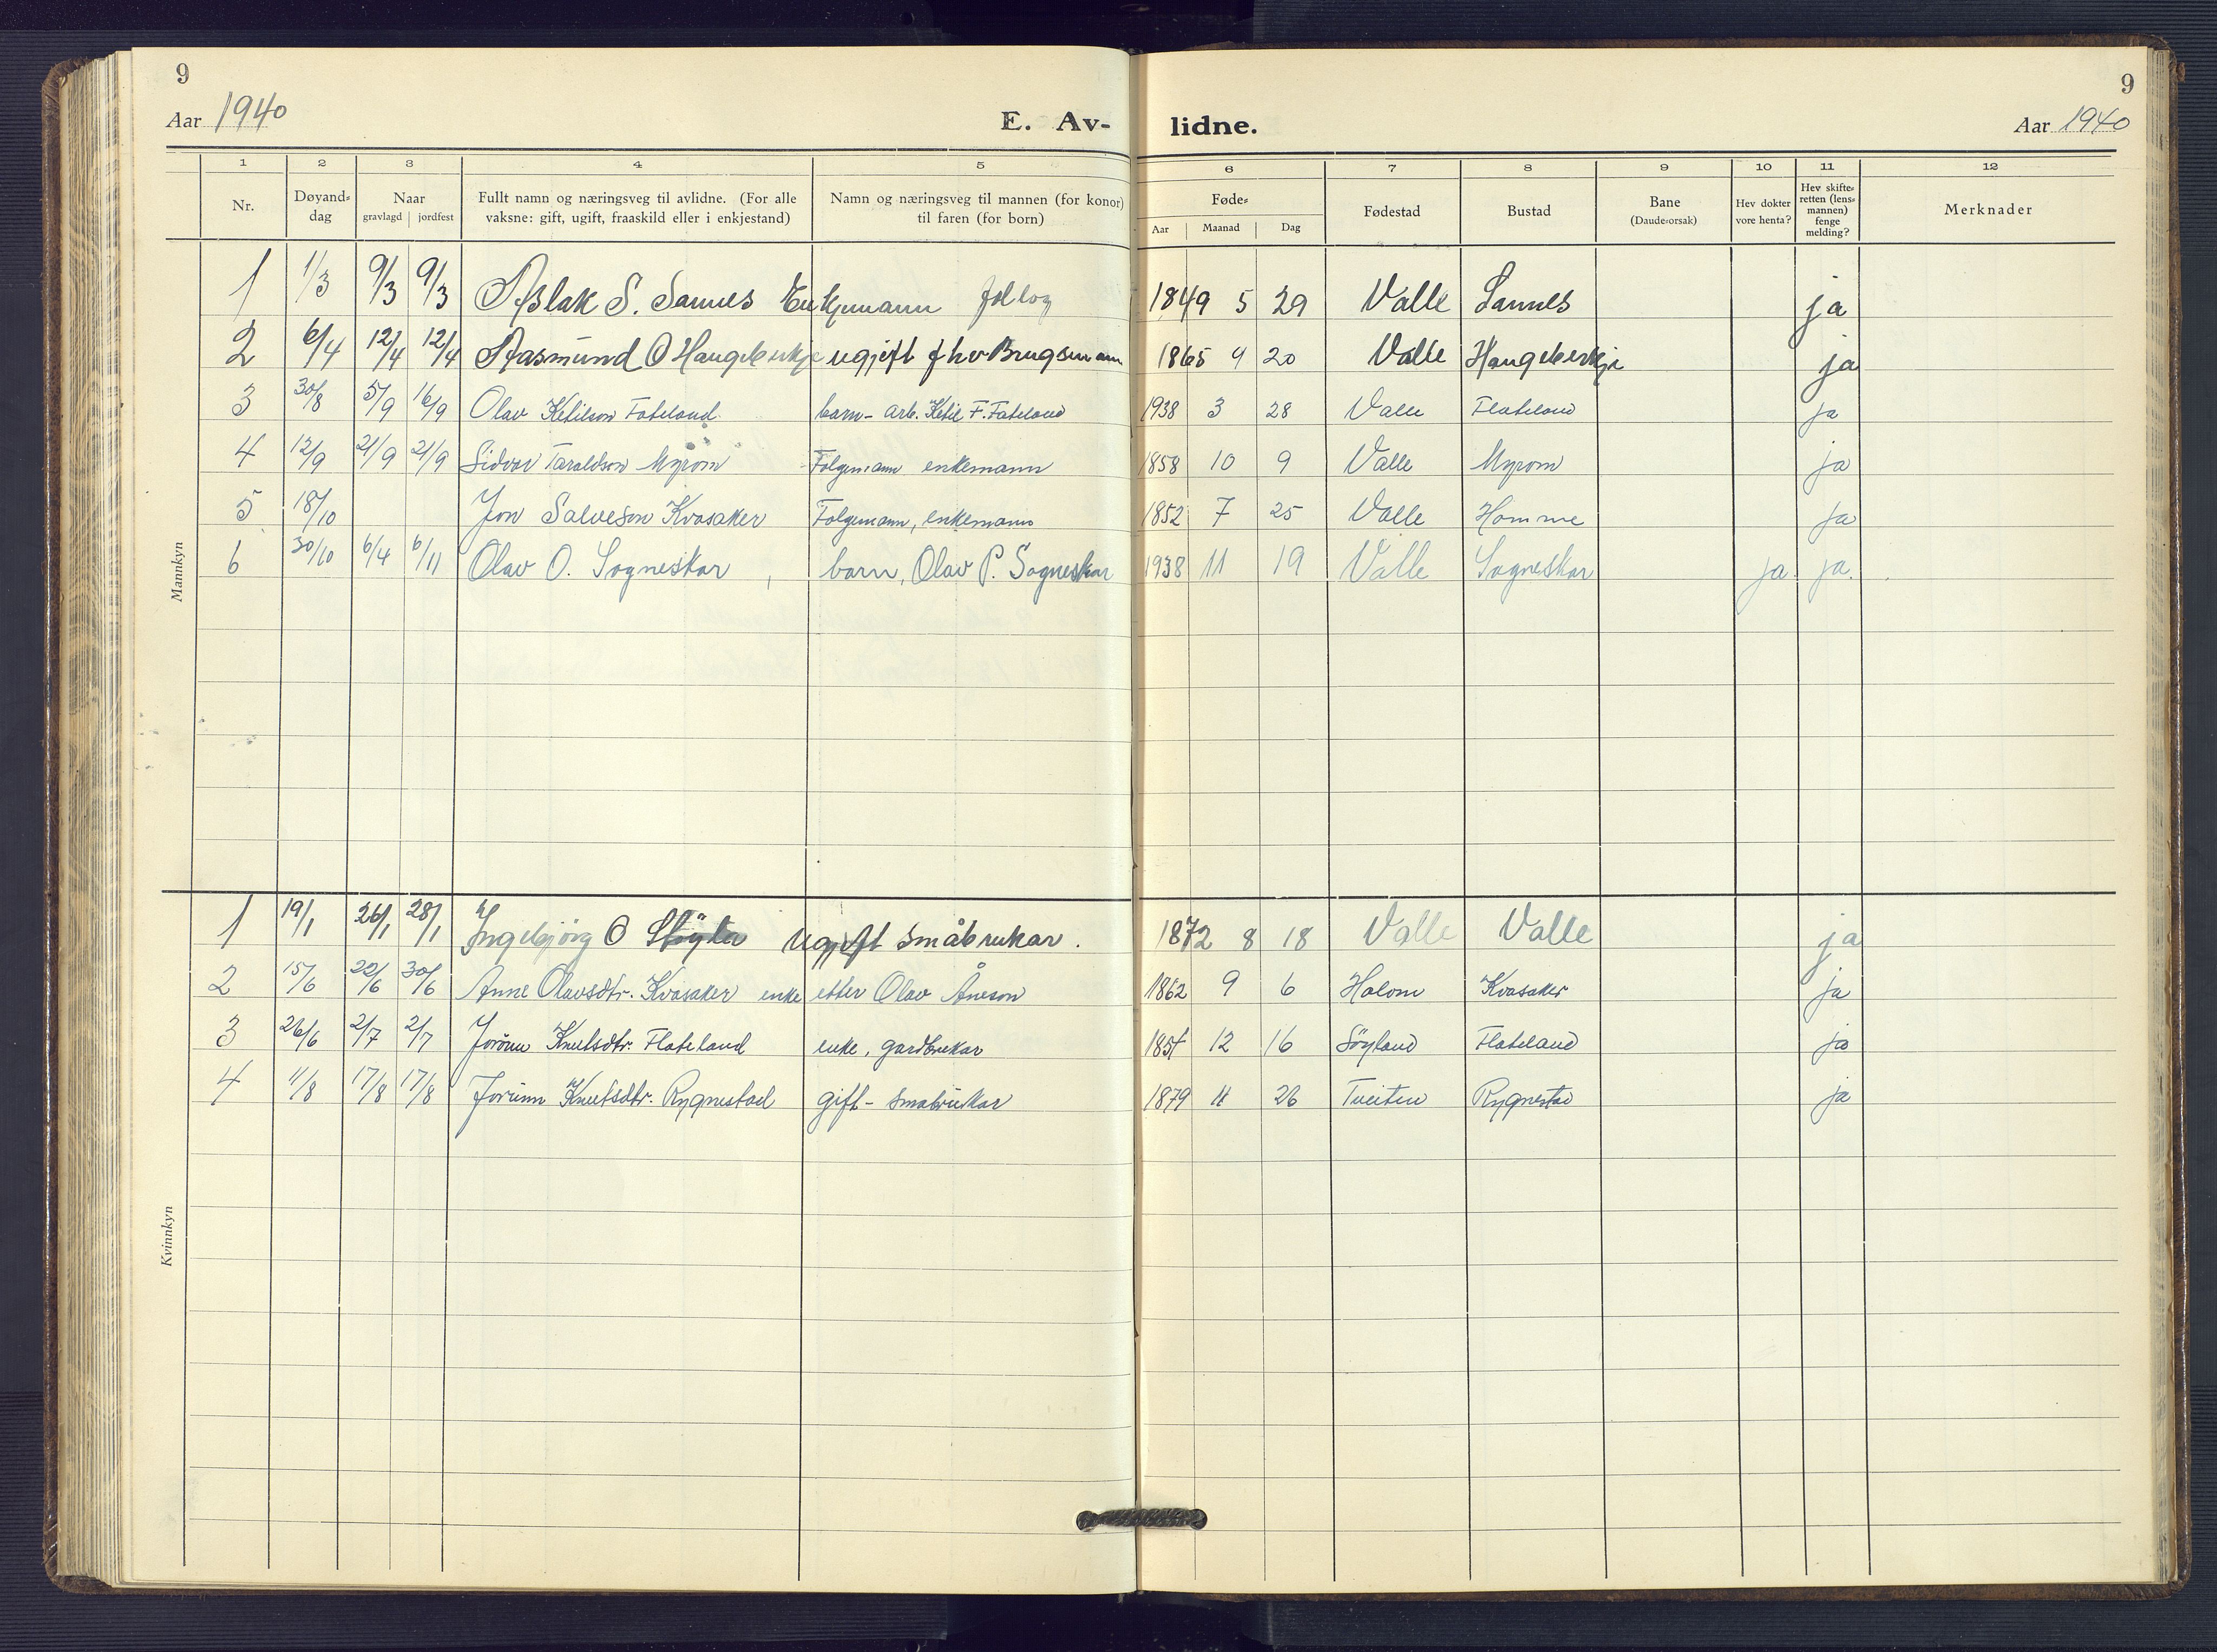 9 9
Aar 1940 E. Av- lidne. Aar 1940
1 2 3 4 5 6 7 8 9 10 11 12
Nr. Døyand=dag Naar gravlagd jordfest Fullt namn og næringsveg til avlidne. (For alle vaksne: gift, ugift, fraaskild eller i enkjestand) Namn og næringsveg til mannen (for konor) til faren (for born) Føde= Aar Maanad Dag Fødestad Bustad Bane (Daude=orsak) Hev dokter vore henta? Hev skifte=retten (lens=mannen) fenge melding? Merknader
Mannkyn
1 1/3 9/3 9/3 Aslak S. Sannes Enkjemann 1849 5 29 Valle Sannes ja
2 6/4 12/4 12/4 Aasmund O Haugeberkje ugjift fhv Brugsmann 1865 9 20 Valle Haugeberkje ja
3 30/8 5/9 16/9 Olav Ketilson Fateland barn - arb. Ketil F. Fateland 1938 3 28 Valle Flateland ja
4 12/9 21/9 21/9 Sidvor Taraldson Myrom Folgemann enkemann 1858 10 9 Valle Myrom ja
5 18/10 Jon Salveson Kvasaker Folgemann, enkemann 1852 7 25 Valle Homme ja
6 30/10 6/4 6/11 Olav O. Sogneskar, barn, Olav P. Sogneskar 1938 11 19 Valle Sogneskar ja. ja.
Kvinnkyn
1 19/1 26/1 28/1 Ingebjörg O ugjift småbrukar. 1872 8 18 Valle Valle ja
2 15/6 22/6 30/6 Anne Olavsdtr. Kvasaker enke etter Olav Åneson 1862 9 6 Holom Kvasaker ja
3 26/6 2/7 2/7 Jorönn Knutsdtr. Flateland enke, gardbrukar 12 16 Söyland Flateland ja
4 11/8 17/8 17/8 Jorunn Knutsdtr. Rygnestad gift - småbrukar 1879 11 26 Tveiten Rygnestad ja